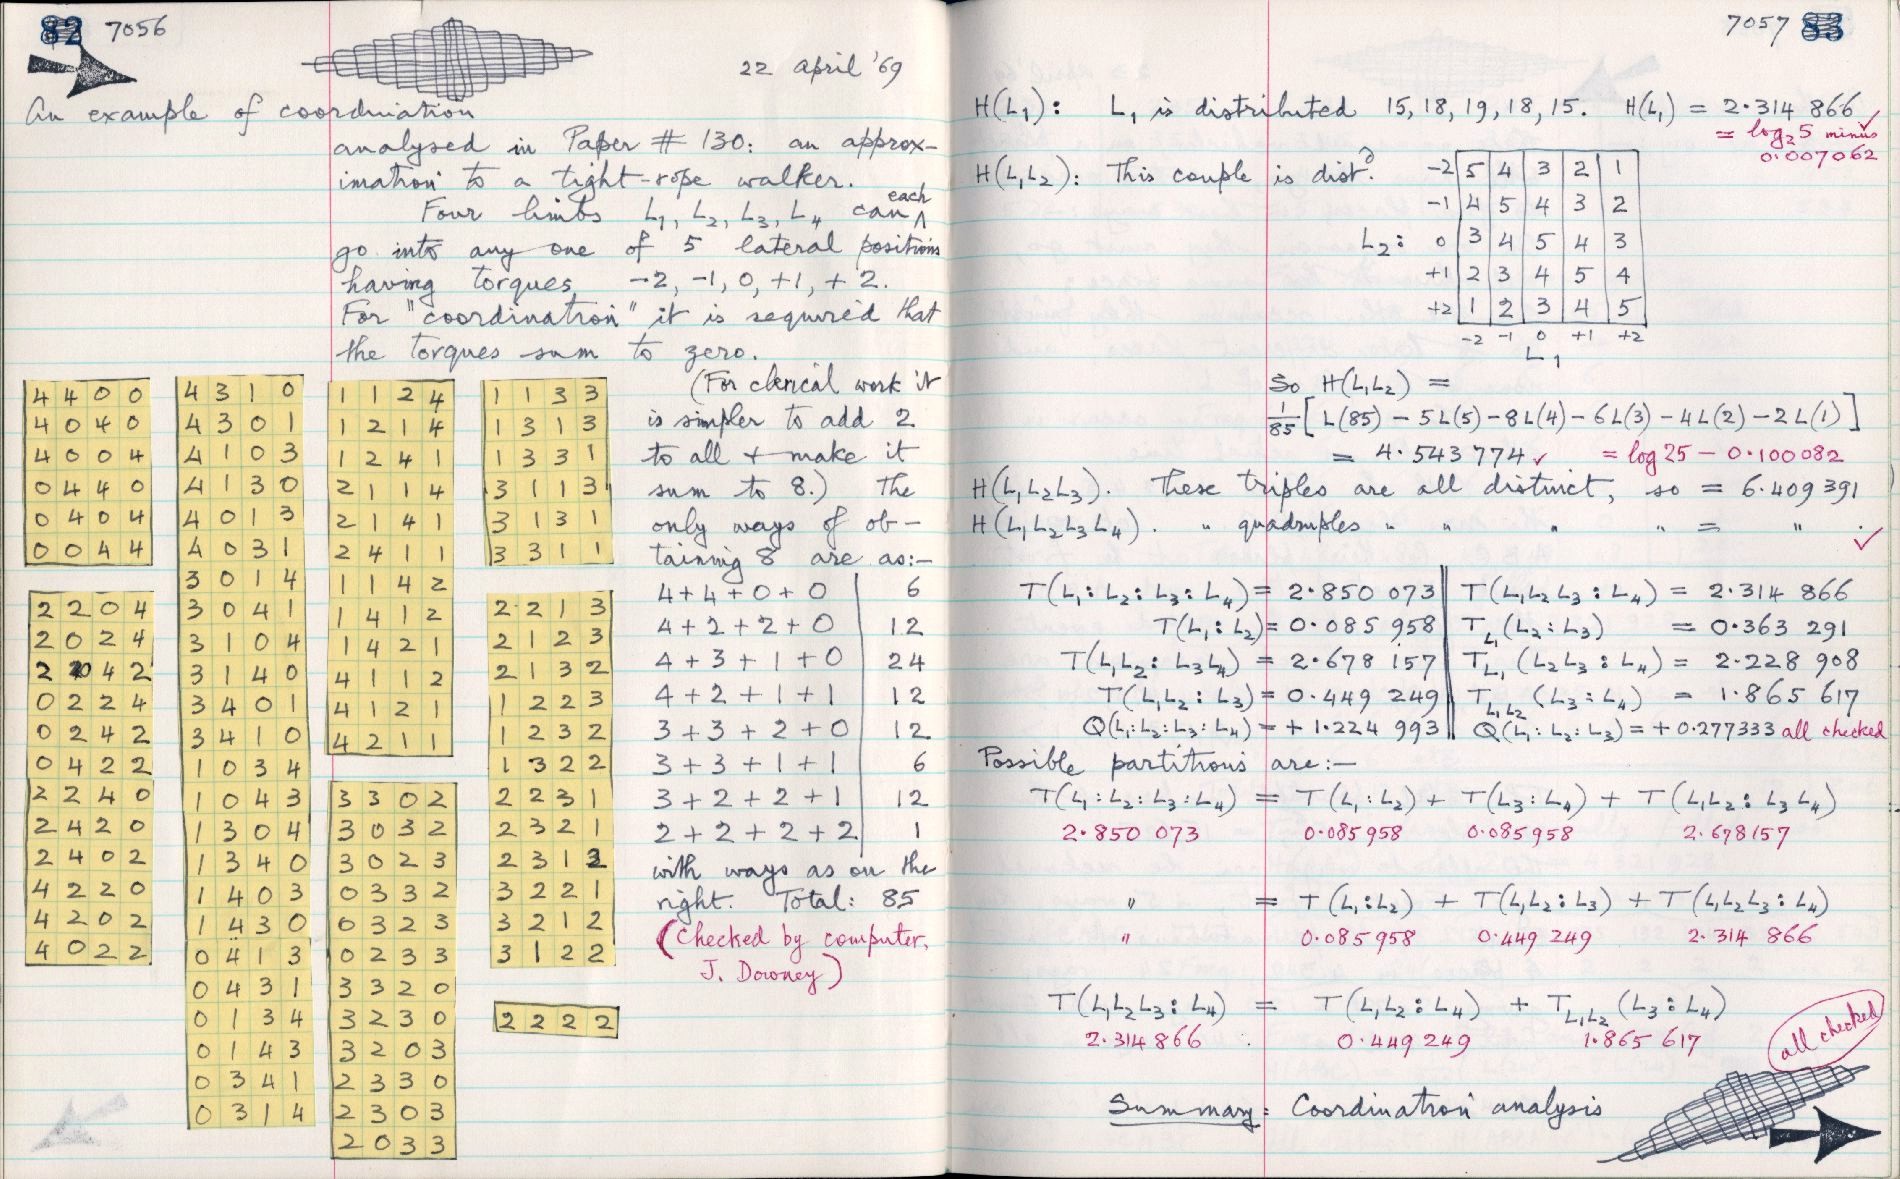 82 7056
22 April '69
An example of coordination
analysed in Paper # 130: an approx-
imation to a tight-rope walker.
Four limbs L1, L2, L3, L4 can each
go into any one of 5 lateral positions
having torques -2, -1, 0, +1, +2.
For "coordination" it is required that
the torques sum to zero.
(For clerical work it
is simpler to add 2
to all + make it
sum to 8.) The
only ways of ob-
taining 8 are as:-
4+4+0+0 6
4+2+2+0 12
4+3+1+0 24
4+2+1+1 12
3+3+2+0 12
3+3+1+1 6
3+2+2+1 12
2+2+2+2 1
with ways as on the
right. Total: 85
(Checked by computer,
J. Downey)
4 4 0 0
4 0 4 0
4 0 0 4
0 4 4 0
0 4 0 4
0 0 4 4
2 2 0 4
2 0 2 4
2 0 4 2
0 2 2 4
0 2 4 2
0 4 2 2
2 2 4 0
2 4 2 0
2 4 0 2
4 2 2 0
4 2 0 2
4 0 2 2
4 3 1 0
4 3 0 1
4 1 0 3
4 1 3 0
4 0 1 3
4 0 3 1
3 0 1 4
3 0 4 1
3 1 0 4
3 1 4 0
3 4 0 1
3 4 1 0
1 0 3 4
1 0 4 3
1 3 0 4
1 3 4 0
1 4 0 3
1 4 3 0
0 4 1 3
0 4 3 1
0 1 3 4
0 1 4 3
0 3 4 1
0 3 1 4
1 1 2 4
1 2 1 4
1 2 4 1
2 1 1 4
2 1 4 1
2 4 1 1
1 1 4 2
1 4 1 2
1 4 2 1
4 1 1 2
4 1 2 1
4 2 1 1
3 3 0 2
3 0 3 2
3 0 2 3
0 3 3 2
0 3 2 3
0 2 3 3
3 3 2 0
3 2 3 0
3 2 0 3
2 3 3 0
2 3 0 3
2 0 3 3
1 1 3 3
1 3 1 3
1 3 3 1
3 1 1 3
3 1 3 1
3 3 1 1
2 2 1 3
2 1 2 3
2 1 3 2
1 2 2 3
1 2 3 2
1 3 2 2
2 2 3 1
2 3 2 1
2 3 1 2
3 2 2 1
3 2 1 2
3 1 2 2
2 2 2 2
7057 83
H(L1): L1 is distributed 15, 18, 19, 18, 15. H(L1) = 2.314 866 ✓
= log2 5 minus
0.007062
H(L1L2): This couple is distd.
-2 5 4 3 2 1
-1 4 5 4 3 2
L2: 0 3 4 5 4 3
+1 2 3 4 5 4
+2 1 2 3 4 5
-2 -1 0 +1 +2
L1
So H(L1L2) =
1/85 [L(85) - 5L(5) - 8L(4) - 6L(3) - 4L(2) - 2L(1)]
= 4.543 774 ✓ = log 25 - 0.100082
H(L1L2L3). These triples are all distinct, so = 6.409 391
H(L1L2L3L4). " quadruples " " " " = " . ✓
T(L1:L2:L3:L4) = 2.850 073 T(L1L2L3:L4) = 2.314 866
T(L1:L2) = 0.085 958 TL1(L2:L3) = 0.363 291
T(L1L2:L3L4) = 2.678 157 TL1(L2L3:L4) = 2.228 908
T(L1L2:L3) = 0.449 249 TL1L2(L3:L4) = 1.865 617
Q(L1:L2:L3:L4) = +1.224 993 Q(L1:L2:L3) = +0.277333 all checked
Possible partitions are:-
T(L1:L2:L3:L4) = T(L1:L2) + T(L3:L4) + T(L1L2:L3L4)
2.850 073 0.085958 0.085958 2.678157
" = T(L1:L2) + T(L1L2:L3) + T(L1L2L3:L4)
" 0.085 958 0.449 249 2.314 866
T(L1L2L3:L4) = T(L1L2:L4) + TL1L2(L3:L4)
2.314 866 0.449 249 1.865 617
all checked
Summary: Coordination analysis